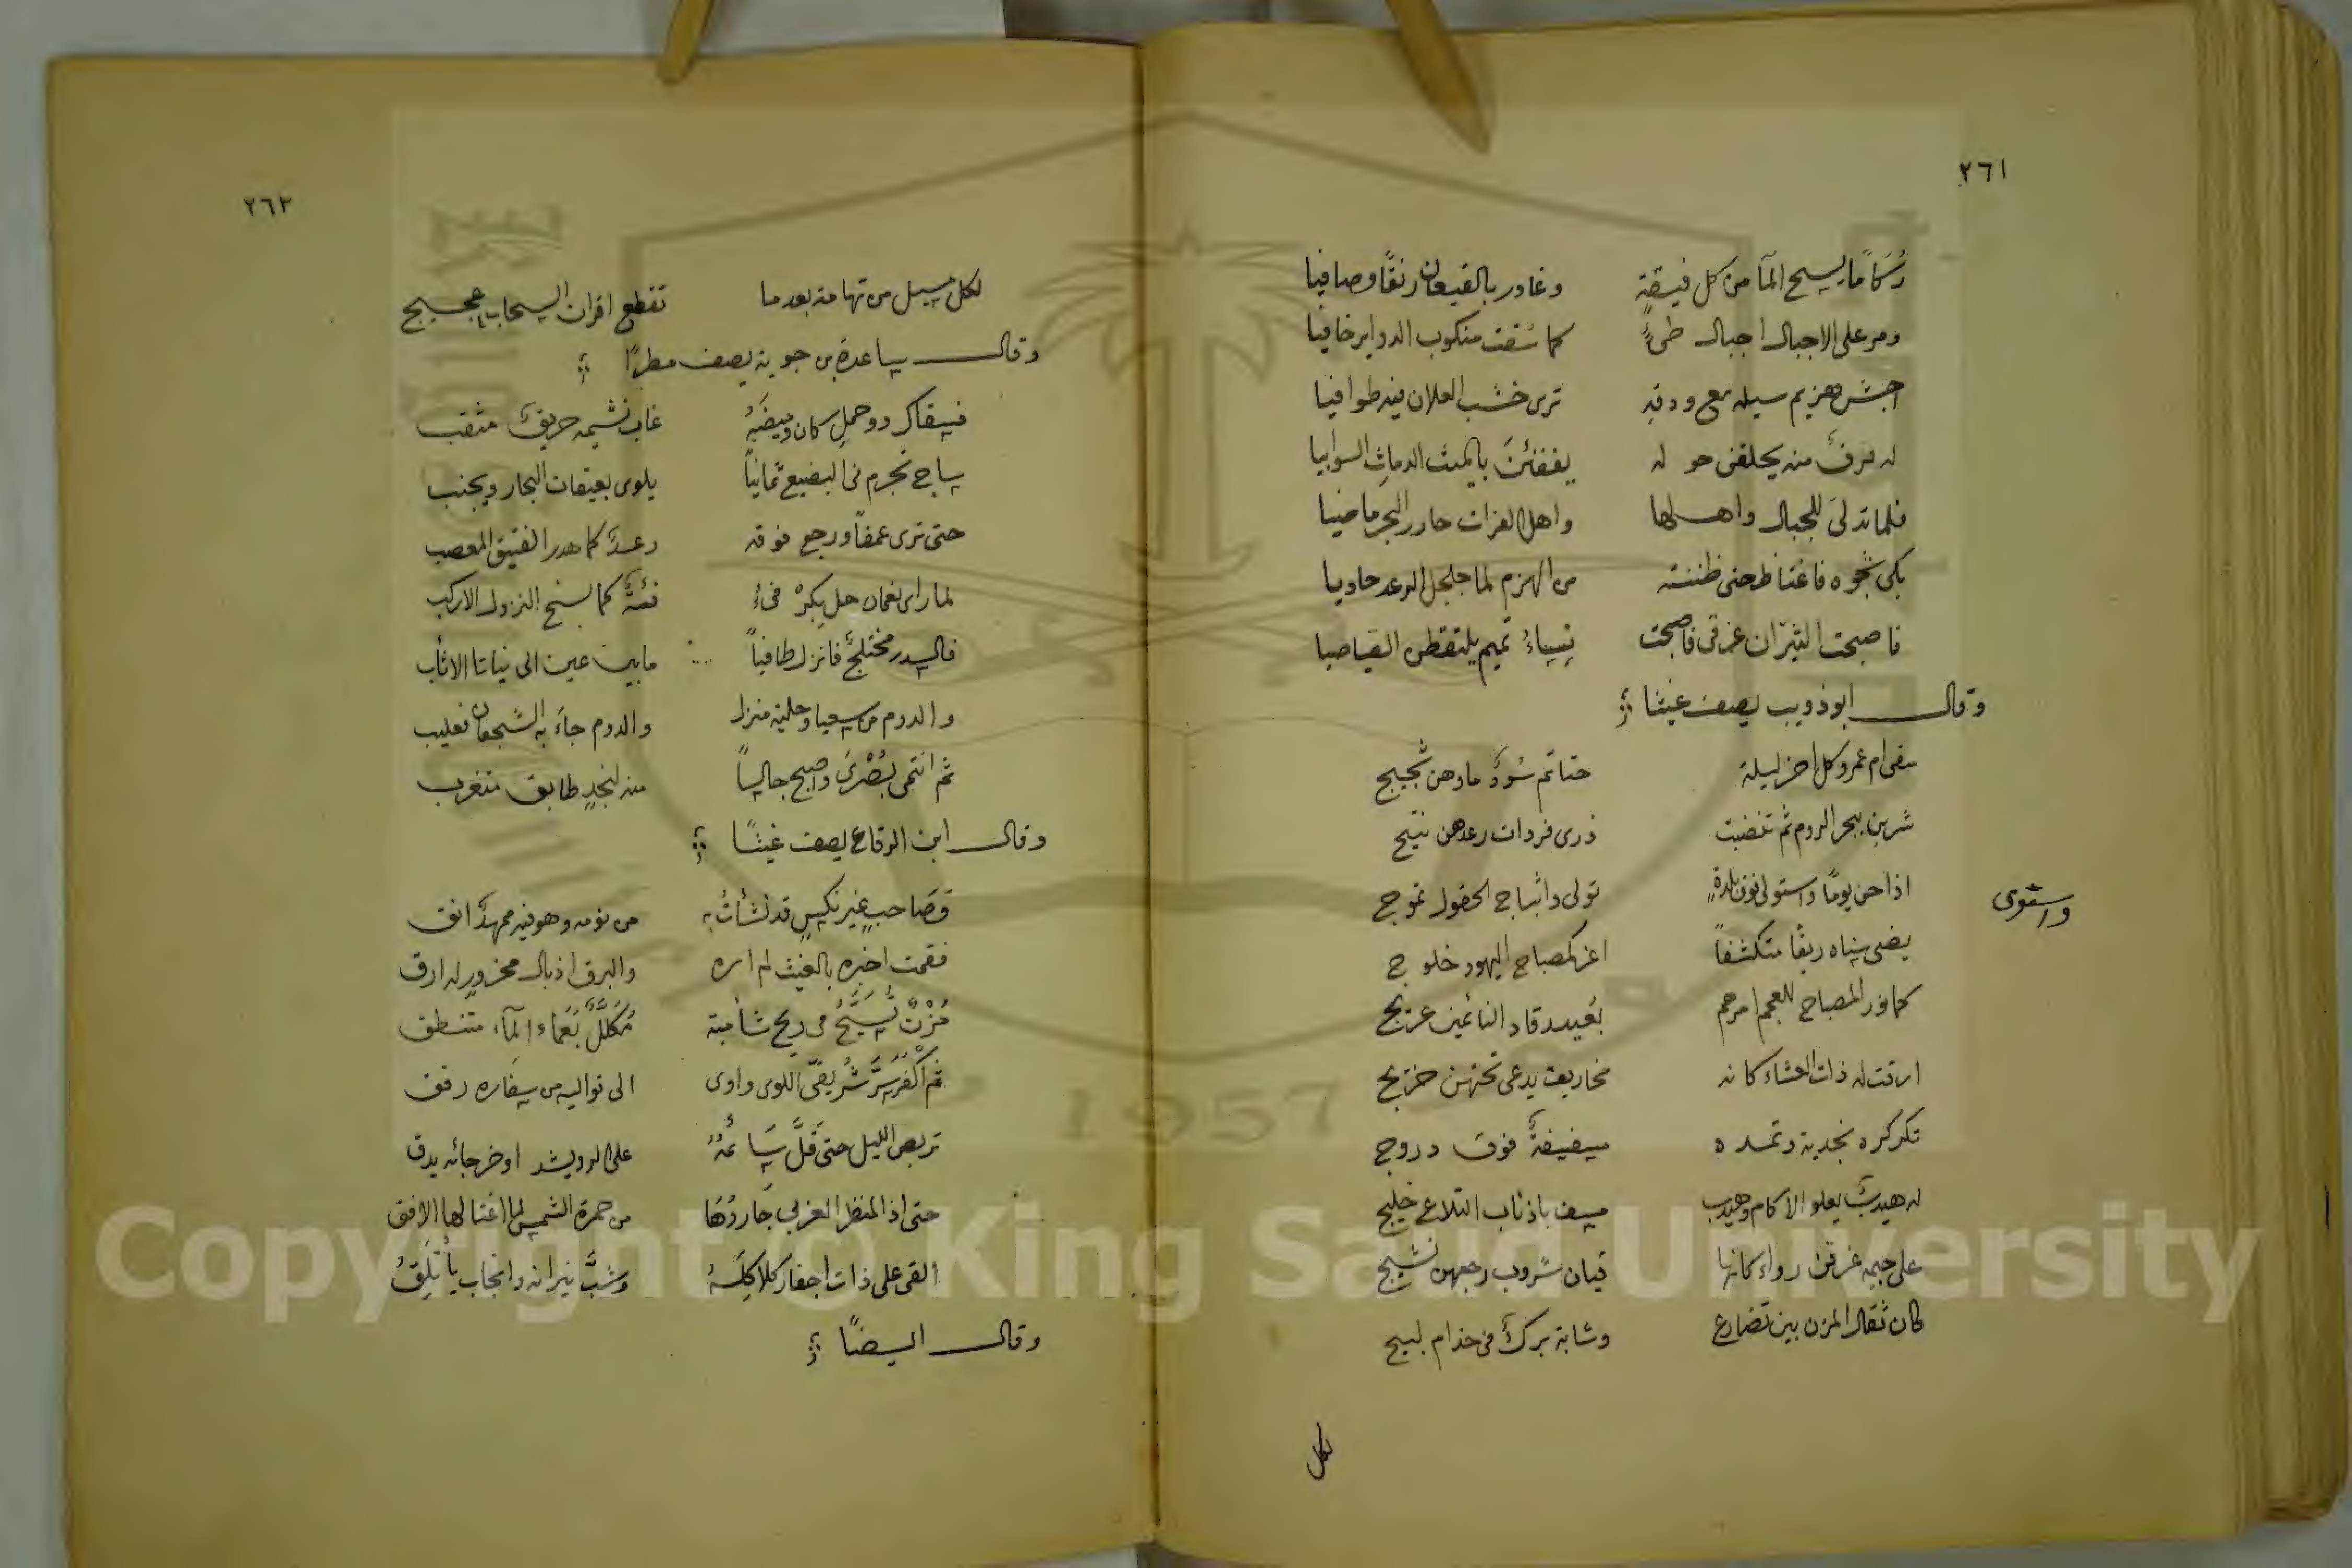 ٢٦١
رُسَامًا يسيح المآ من كل فيقةٍ وغادر بالقيعان رنقًا وصافيا
ومر على الاجبال اجبال طىءٍ كما سُقت منكوب الدوابر خافيا
اجش هزيم سيله مع ودقه ترى خشب الغلان فيه طوافيا
له فرقٌ منه يحلقن حوله يفقئن بالميث الدماث السوابيا
فلما تدلى للجبال واهلها واهل الفرات حادر البحر ماضيا
بكى شجوه فاغتاظ حتى ظننته من الهزم لما جلجل الرعد حاديا
فاصبحت الثيران غرقى فاصبحت نساءُ تميم يلتقطن الصياصيا
وقال ابو ذويب يصف غيثا
سقى ام عمرو كل اخر ليلة حناتم سُودٌ ماوهن ثجيج
شربن ببحر الروم ثم تنصبت ذرى فردات رعدهن نئيج
اذا حن يومًا واستوى فوق بلدةٍ تولى واثباج الحقول تموج
واستوى
يضى سناه ريقًا متكشفًا اغر كمصباح اليهود خلوج
كما نور المصباح للعجم امرهم بُعيد رقاد النائمين عريج
ارقت له ذات العشاء كانه مخاريق يدعى تحتهن خريج
تكركره نجدية وتمده سفيفةٌ فوق دروج
له هيدبٌ يعلو الاكام وهيدب مسف باذناب التلاع خليج
على جيمه غرقى رواء كانها قيان شروب رجعهن نشيج
كان ثقال المزن بين تضارع وشابة بركٌ فى جذام لبيج
لكل
٢٦٢
لكل مسيل من تهامة بعدما تقطع اقران السحاب عجيج
وقال ساعدة بن جوية يصف مطرًا
فسقاك ذو حملٍ كان وميضَهُ غاب تشيمه حريقٌ مثقب
ساج تجرم فى البضيع ثمانيًا يلوى بعيقات البحار ويجنب
حتى ترى عمقًا ورجع فوقه رعدٌ كما هدر الفنيق المصعب
لما راى نعمان حل بكرْفىءٍ فئةً كما نسخ النزول الاركب
فالسدر مختلجٌ فانزل طافيًا مابين عين الى نباتا الاثأب
والدوم من سعيا وحلية منزل والدوم جاءَ به الشجون فعليب
ثم انتمى بُصْرَى واصبح جالسًا منه لنجدٍ طابق متغرب
وقال ابن الرقاع يصف غيثًا
وصَاحبٍ غير نكسٍ قد نشأتُ به من نومه وهو فيه ممهدٌ انق
فقمت اخبره بالغيث لم اره والبرق اذ بال محزورٍ له ارق
مُزْنٌ تُسَبِّحُ فى ريح شأمية مُكَلَّلٌ بَعَماء المآء منتطق
تربص الليل حتى قَلَّ سَائمُهُ على الرويشد او خرجائه يدق
حتى اذ المنظر الغربى جَاردُهَا من حمرة الشمس لما اغتالها الافق
القى على ذات اجفار كلاكِلَهُ وشبَّ نيرانه وانجاب يأتَلِقُ
وقال ايضًا